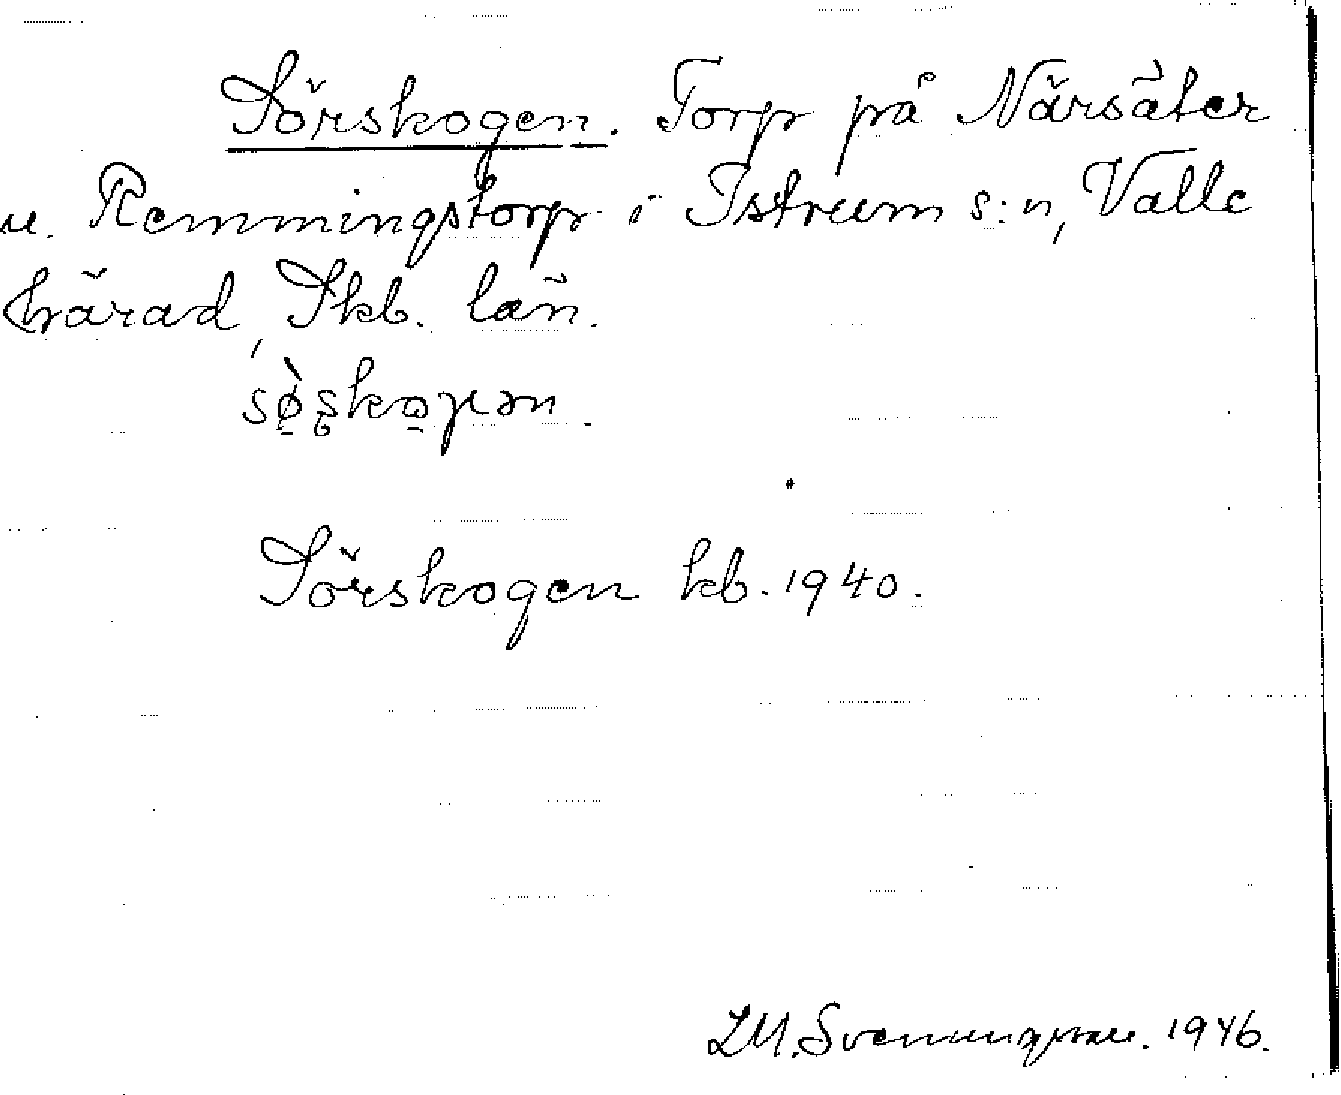 Sörskogen. Torp på Närsäter
u. Remmingstorp i Istrum s:n, Valle
härad, Skb. län.
sø̀ṣkoγən.
Sörskogen kb. 1940.
LM. Svenungsson. 1946.